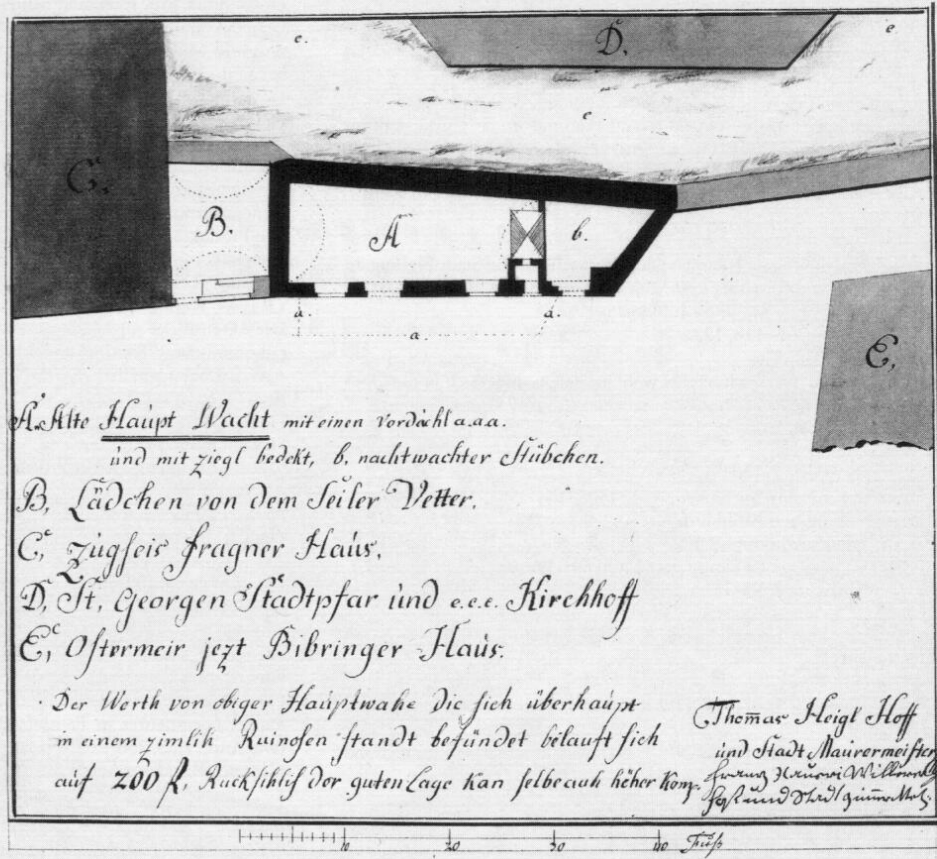 e. D. e.
e.
C. B. A b.
E,
a. a.
a.
A. Alte Haupt Wacht mit einen Vordächl a.a.a.
und mit ziegl bedekt, b. nachtwachter Stübchen.
B, Lädchen von dem Seiler Vetter.
C, Zugseis fragner Haus.
D, St, Georgen Stadtpfar und e.e.e. Kirchhoff
E, Ostermeir jezt Bibringer Haus.
Der Werth von obiger Hauptwahe die sich überhaupt
in einem zimlih Ruinosen standt befündet belauft sich
auf 200 f, Ruksihlih der guten Lage kan selbe auh höher kom̄.
Thomas Heigl Hoff
und Stadt Maurermeister
Franz
und Stadt
10 20 30 40 Fuß